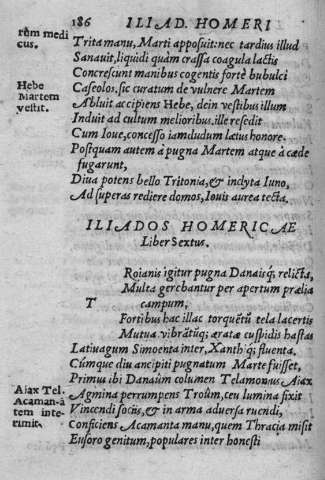 186 ILIAD. HOMERI
rum medi
cus.
Trita manu, Marti apposuit: nec tardius illud
Sanauit, liquidi quàm crassa coagula lactis
Concrescunt manibus cogentis fortè bubulci
Hebe
Martem
vestit.
Caseolos. sic curatum de vulnere Martem
Abluit accipiens Hebe, dein vestibus illum
Induit ad cultum melioribus. ille resedit
Cum Ioue, concesso iamdudum lætus honore.
Postquam autem à pugna Martem atque à cæde
fugarunt,
Diua potens bello Tritonia, & inclyta Iuno,
Ad superas rediere domos, Iouis aurea tecta.
ILIADOS HOMERICAE
Liber Sextus.
Roianis igitur pugna Danaisq́; relicta,
Multa gerebantur per apertum prælia
T campum,
Fortibus hac illac torquētū tela lacertis
Mutua vibrātūq; æratæ cuspidis hastas
Lativagum Simoenta inter, Xanthiq́; fluenta.
Cúmque diu ancipiti pugnatum Marte fuisset,
Primus ibi Danaûm columen Telamonius Aiax
Aiax Tel.
Acaman-ā
tem inte-
rimit.
Agmina perrumpens Troûm, ceu lumina fixit
Vincendi sociis, & in arma adversa ruendi,
Conficiens Acamanta manu, quem Thracia misit
Eusoro genitum, populares inter honesti